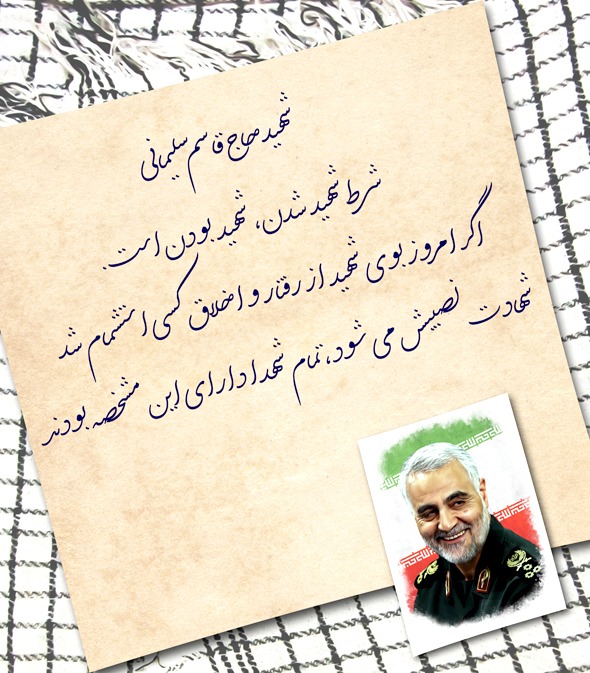 شهید حاج قاسم سلیمانی
شرط شهید شدن، شهید بودن است.
اگر امروز بوی شهید از رفتار و اخلاق کسی استشمام شد
شهادت نصیبش می شود، تمام شهدا دارای این مشخصه بودند